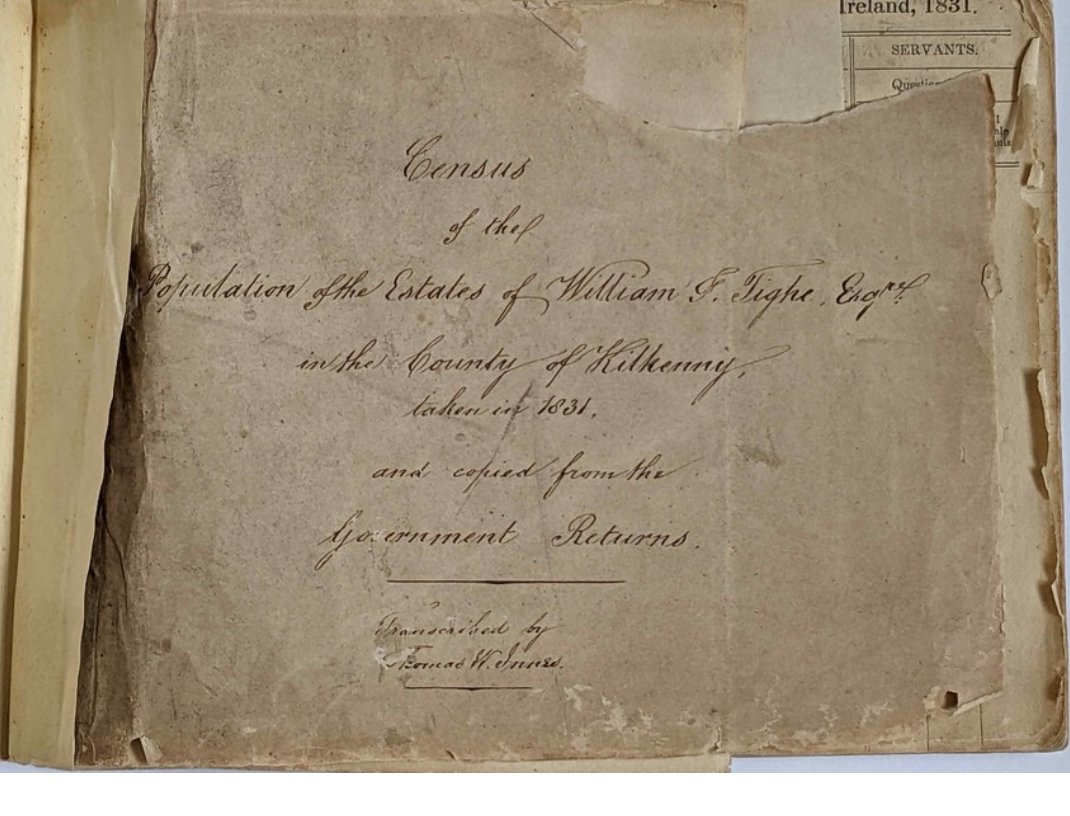 Ireland, 1831.
SERVANTS.
Census
of the
Population of the Estates of William F. Tighe, Esqre.
in the County of Kilkenny,
taken in 1831.
and copied from the
Government Returns.
Transcribed by
Thomas W. Innes.